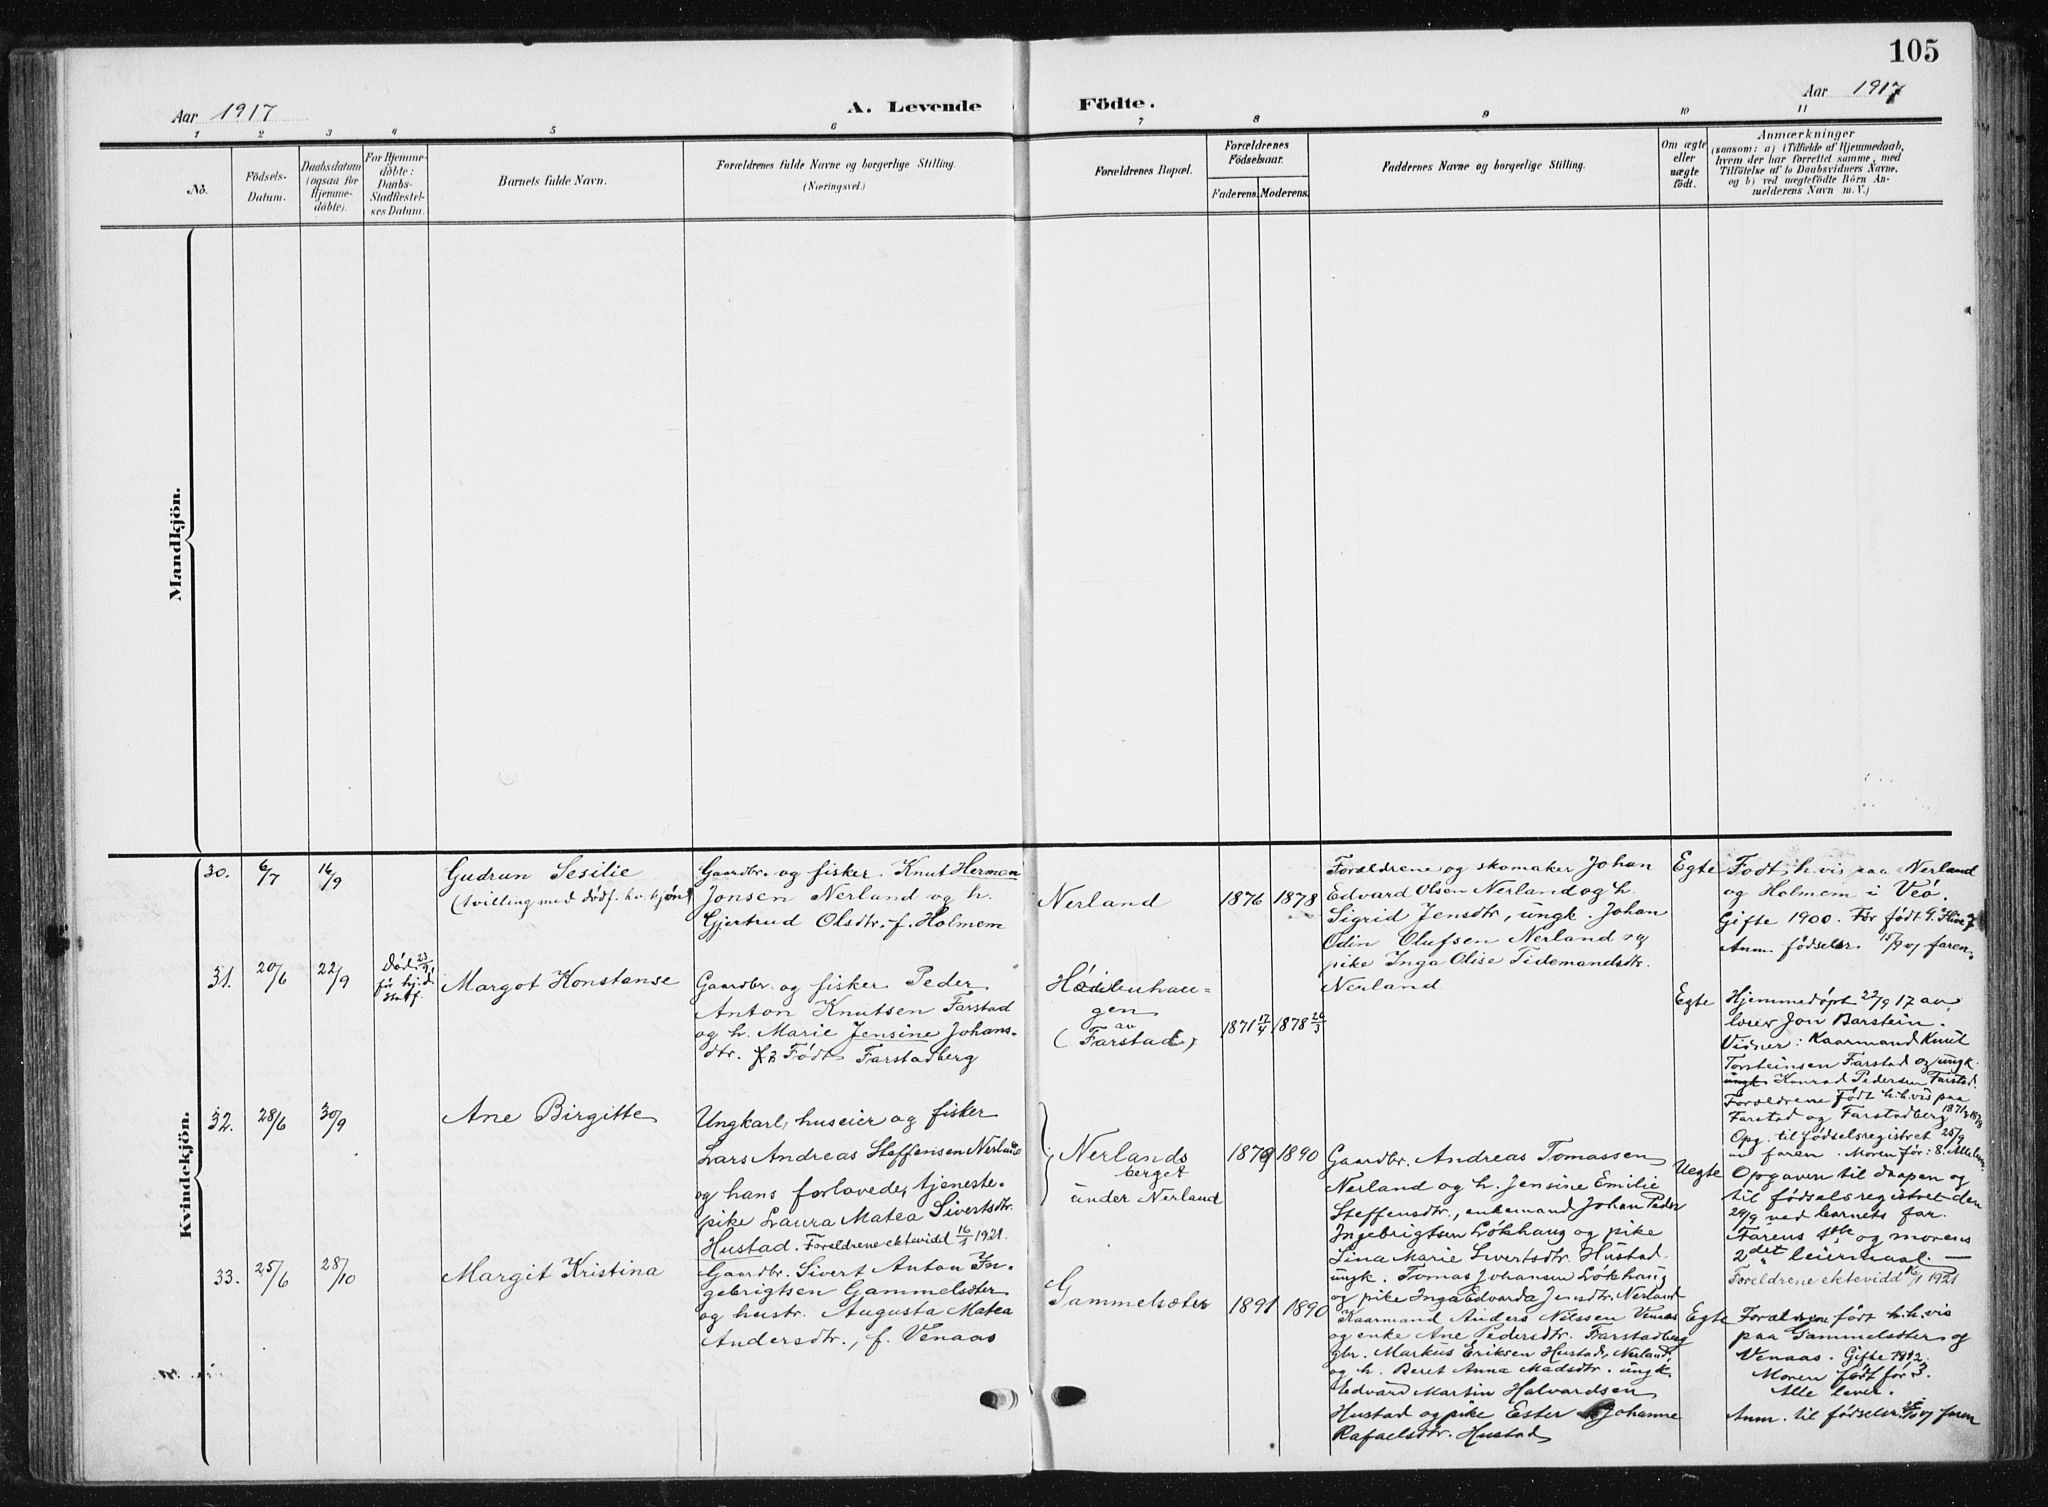 105
Aar 1917
A. Levende Födte.
Aar 1917
1 2 3 4 5 6 7 8 9 10 11
No.
Födsels-
Datum.
Daabsdatum
(ogsaa for
Hjemme-
döbte).
For Hjemme-
döbte:
Daabs-
Stadfestel-
ses Datum.
Barnets fulde Navn.
Forældrenes fulde Navne og borgerlige Stilling
(Næringsvei.)
Forældrenes Bopæl.
Forældrenes
Födselsaar.
Faderens. Moderens.
Faddernes Navne og borgerlige Stilling.
Om ægte
eller
uægte
født.
Anmærkninger
(saasom: a) i Tilfælde af Hjemmedaab,
hvem der har forrettet samme, med
Tilföielse af to Daabsvidners Navne.
og b) ved uægtefödte Börn An-
melderens Navn m. V.)
Mandkjön.
Kvindekjön.
30.
6/7
16/9
Gudrun Sesilie
(tvilling med dødf. kv.kjøn)
Gaardbr. og fisker Knut Herman
Jonsen Nerland og h.
Gjertrud Olsdtr. f. Holmem
Nerland
1876
1878
Forældrene og skomaker Johan
Edvard Olsen Nerland og h.
Sigrid Jensdtr, ungk. Johan
Odin Olufsen Nerland og
pike Inga Olise Tidemandsdtr.
Nerland
Egte
Født h.vis paa Nerland
og Holmem i Veø.
Gifte 1900. Før født 9.
Anm. fødselsr. 15/9 v/ faren.
31.
20/6
22/9
Død 23/9
før hj.d.
statf.
Margot Konstanse
Gaardbr. og fisker Peder
Anton Knutsen Farstad
og h. Marie Jensine Johans-
dtr. Født Farstadberg
Høilenhau-
gen
av
(Farstad)
1871 17/4
1878 20/3
Egte
Hjemmedøpt 22/9 17 av
lærer Jon Barstein.
Vidner: Kaarmand Knut
Torsteinsen Farstad og ungk.
ungk Konrad Pedersen Farstad.
Forældrene født h.h.vis paa
Farstad og Farstadberg
Opg. til fødselsregistret 25/9
av faren. Moren før: 8. Alle lev.
32.
28/6
30/9
Ane Birgitte
Ungkarl, huseier og fisker
Lars Andreas Steffensen Nerland
og hans forlovede, tjeneste-
pike Laura Matea Sivertsdtr.
Hustad. Forældrene ektevidd 16/1 1921.
Nerlands
berget
under Nerland
1879
1890
Gaardbr. Andreas Tomassen
Nerland og h. Jensine Emilie
Steffensdtr., enkemand Johan Peder
Ingebrigtsen Løkhaug og pike
Lina Marie Sivertsdtr. Hustad
ungk. Tomas Johansen Løkhaug
og pike Inga Edvarda Jensdtr. Nerland
Uegte
Opgaven til daapen og
til fødselsregistret den
29/9 ved barnets far.
Farens 1ste og morens
2det leiermaal —
Forældrene ektevidd 16/1 1921
33.
25/6
28/10
Margit Kristina
Gaardbr. Sivert Anton In-
gebrigtsen Gammelsæter
og hustr. Augusta Matea
Andersdtr., f. Venaas
Gammelsæter
1891
1890
Kaarmand Anders Nilssen Venaas
og enke Ane Pedersdtr. Farstadberg
gbr. Markus Eriksen Hustad, Nerland
og h. Beret Anna Madsdtr. ungk.
Edvard Martin Halvardsen
Hustad og pike Ester Johanne
Rafaelsdtr. Hustad
Egte
Forældrene født h.h.vis
paa Gammelsæter og
Venaas. Gifte 1912.
Moren født før 3.
Alle lever.
Anm. til fødselsr. v/ faren